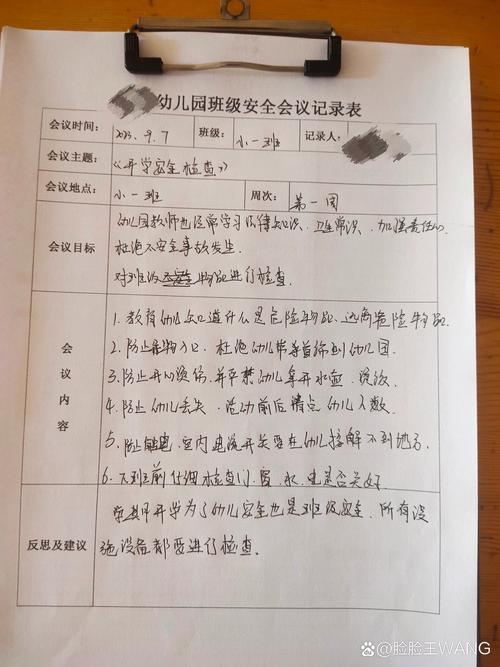 幼儿园班级安全会议记录表
会议时间: 2023.9.7 班级: 小一班 记录人:
会议主题: 《开学安全检查》
会议地点: 小一班 周次: 第一周
会议目标
幼儿园教师也经常学习法律知识、卫生常识、加强责任心
杜绝不安全事故发生.
对班级物品进行检查.
会议内容
1.教育幼儿知道什么是危险物品、远离危险物品.
2.防止异物入口、杜绝幼儿带首饰到幼儿园.
3.防止开水烫伤、并严禁幼儿拿开水壶、
4.防止幼儿丢失、活动前后清点幼儿人数.
5.防止触电、室内电源开关要在幼儿接解不到地方.
6.下班前仔细检查门、窗、水、电是否关好
反思及建议
开学为了幼儿安全也是班级安全、所有设
施设备都要进行检查.
@脸脸王WANG